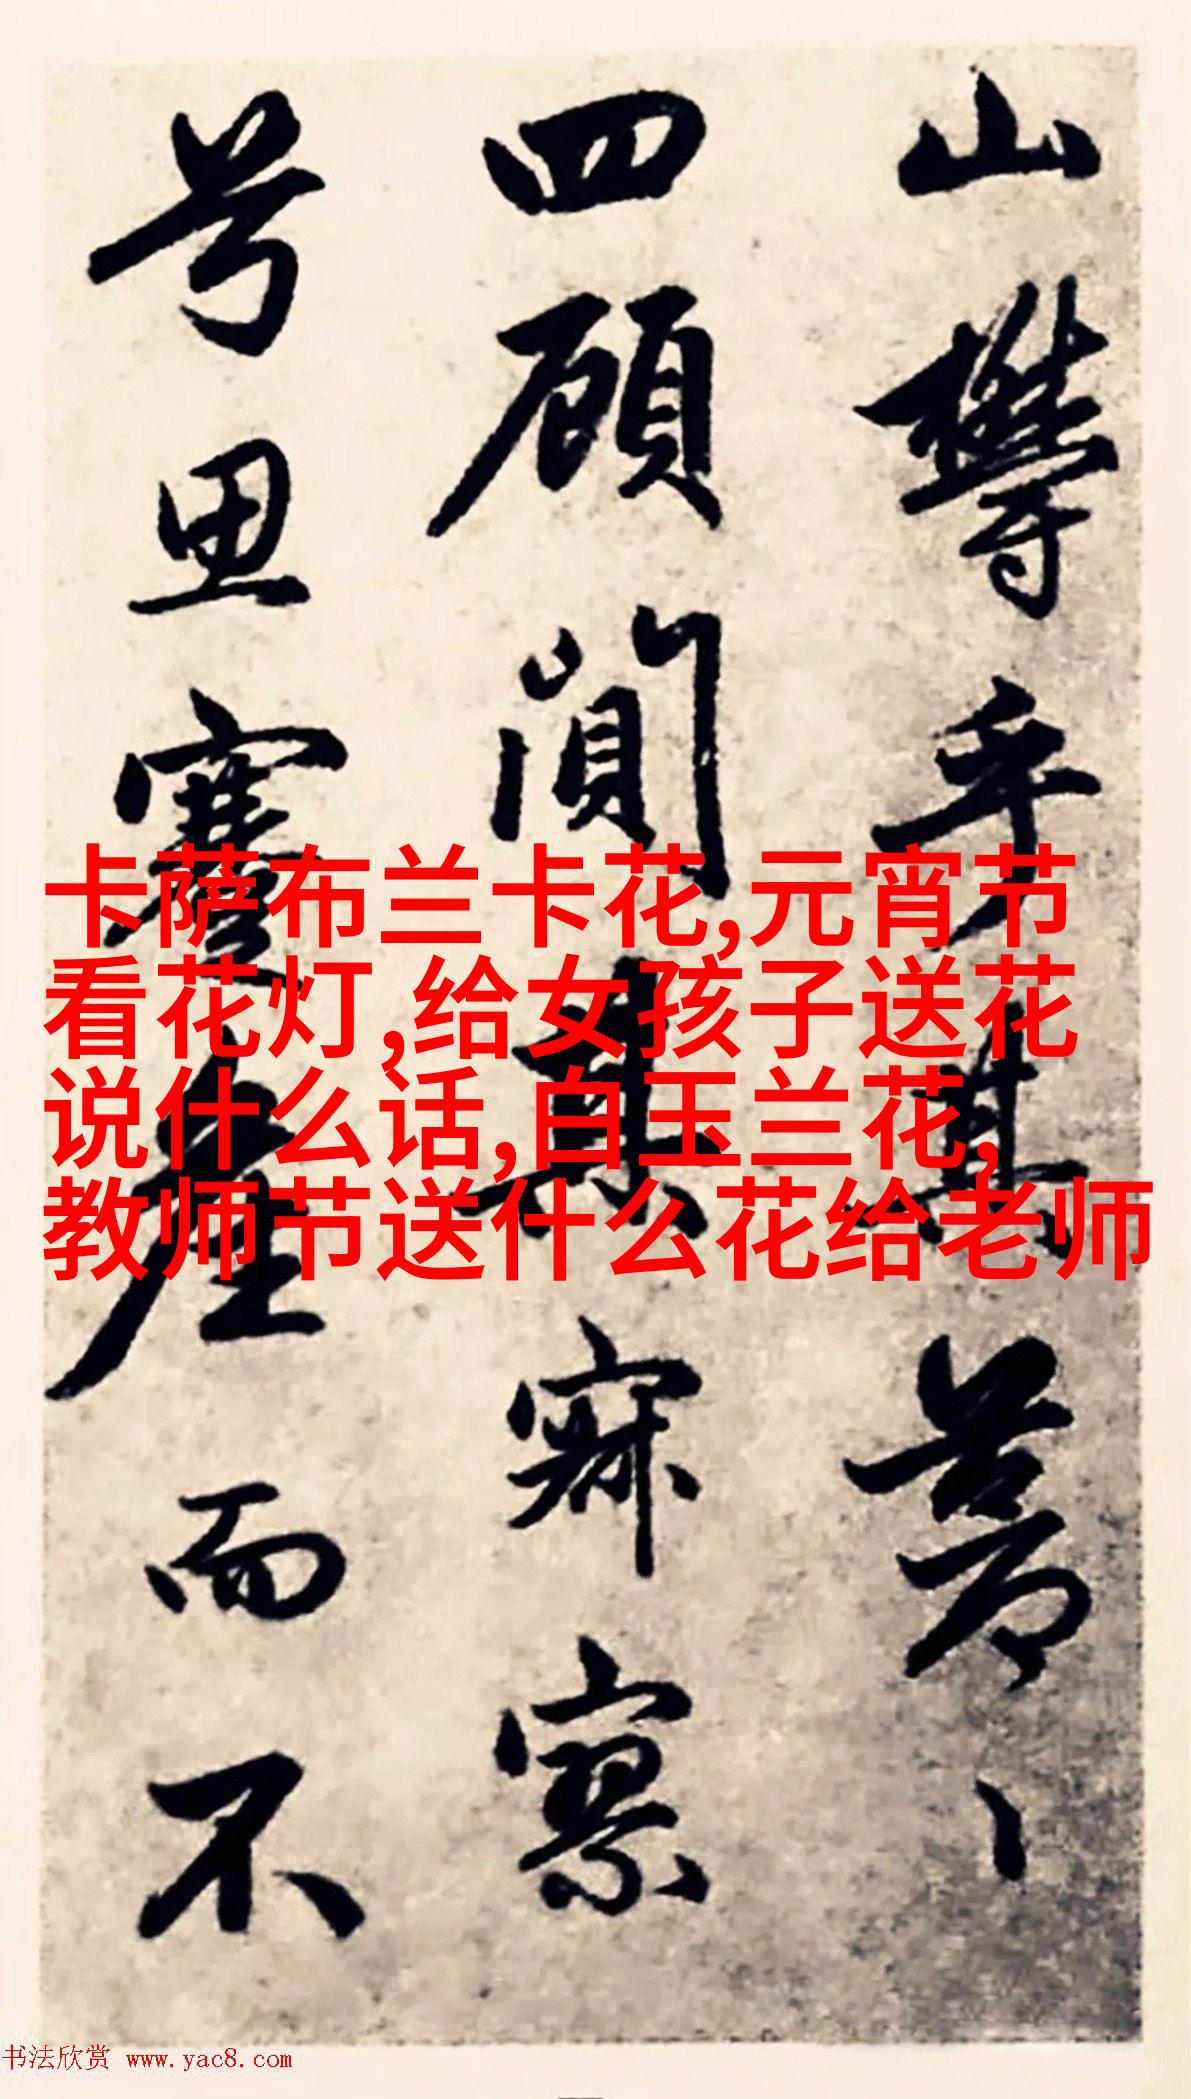 山欝乎其蒼〻
四顧闃其寂寥
兮思蹇產而不
卡萨布兰卡花,元宵节
看花灯,给女孩子送花
说什么话,白玉兰花,
教师节送什么花给老师
书法欣赏 www.yac8.com